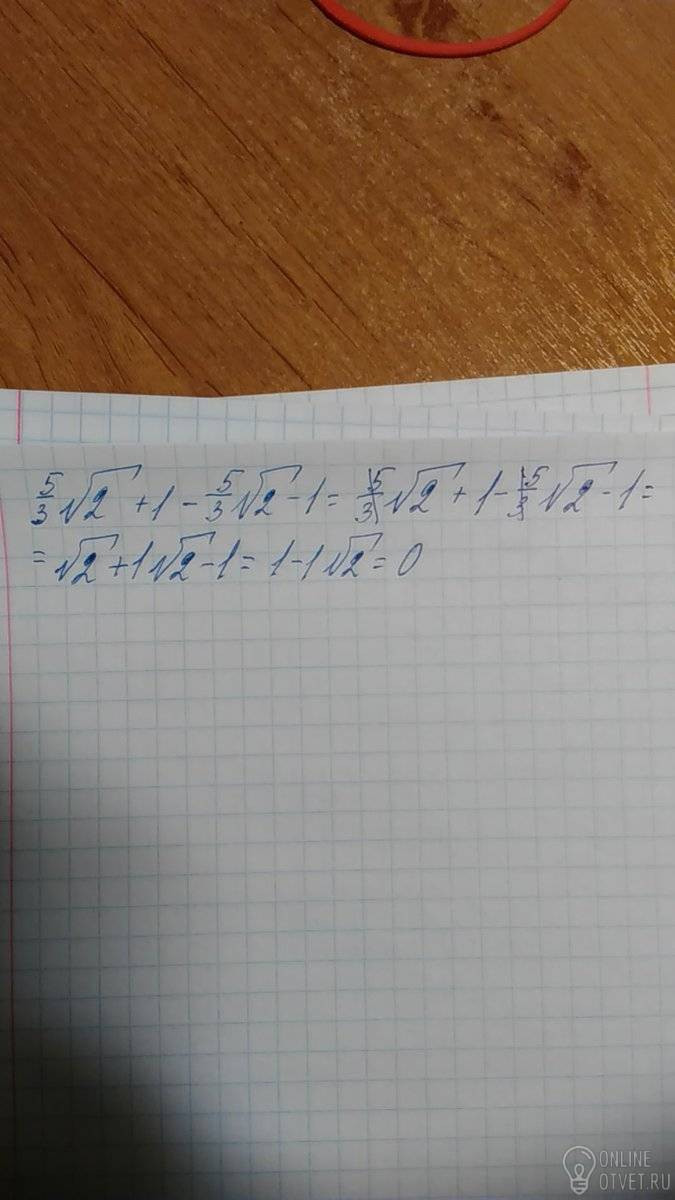 5/3 √2 + 1 - 5/3 √2 - 1 = 5/3 √2 + 1 - 5/3 √2 - 1 =
= √2 + 1 √2 - 1 = 1 - 1 √2 = 0
ONLINE
OTVET.RU